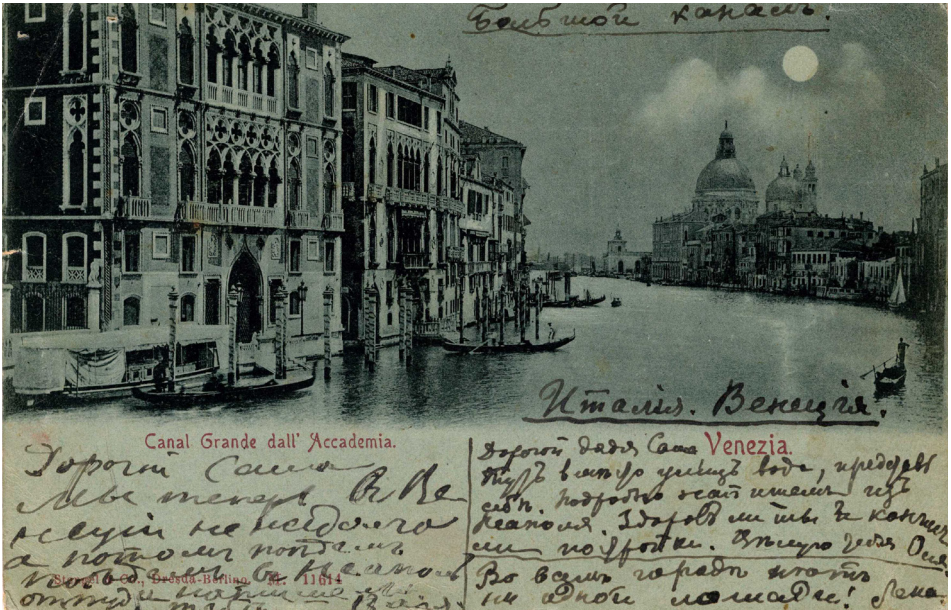 Большой каналъ.
Италія. Венеція.
Canal Grande dall' Accademia.
Venezia.
Дорогой Саша
Мы теперь въ Ве
неціи не надолго
а потомъ поѣдемъ
въ Неаполь
Stengel & Co., Dresda-Berlino. 11614
оттуда напишемъ
Ваня
Дорогой дядя Саша
тутъ вмѣсто улицъ вода, представь
себѣ. Подробно напишемъ изъ
Неаполя. Здоровъ ли ты и кончилъ
ли постройки. Цѣлую тебя Оля
Во всемъ городѣ нѣтъ
ни одной лошади! Лена.